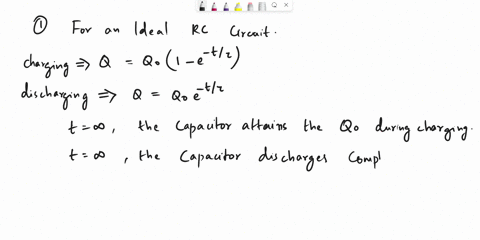 ① For an Ideal RC Circuit.
charging ⇒ Q = Q₀ (1 - e^{-t/τ})
discharging ⇒ Q = Q₀ e^{-t/τ}
t = ∞, the Capacitor attains the Q₀ during charging.
t = ∞, the Capacitor discharges Compl